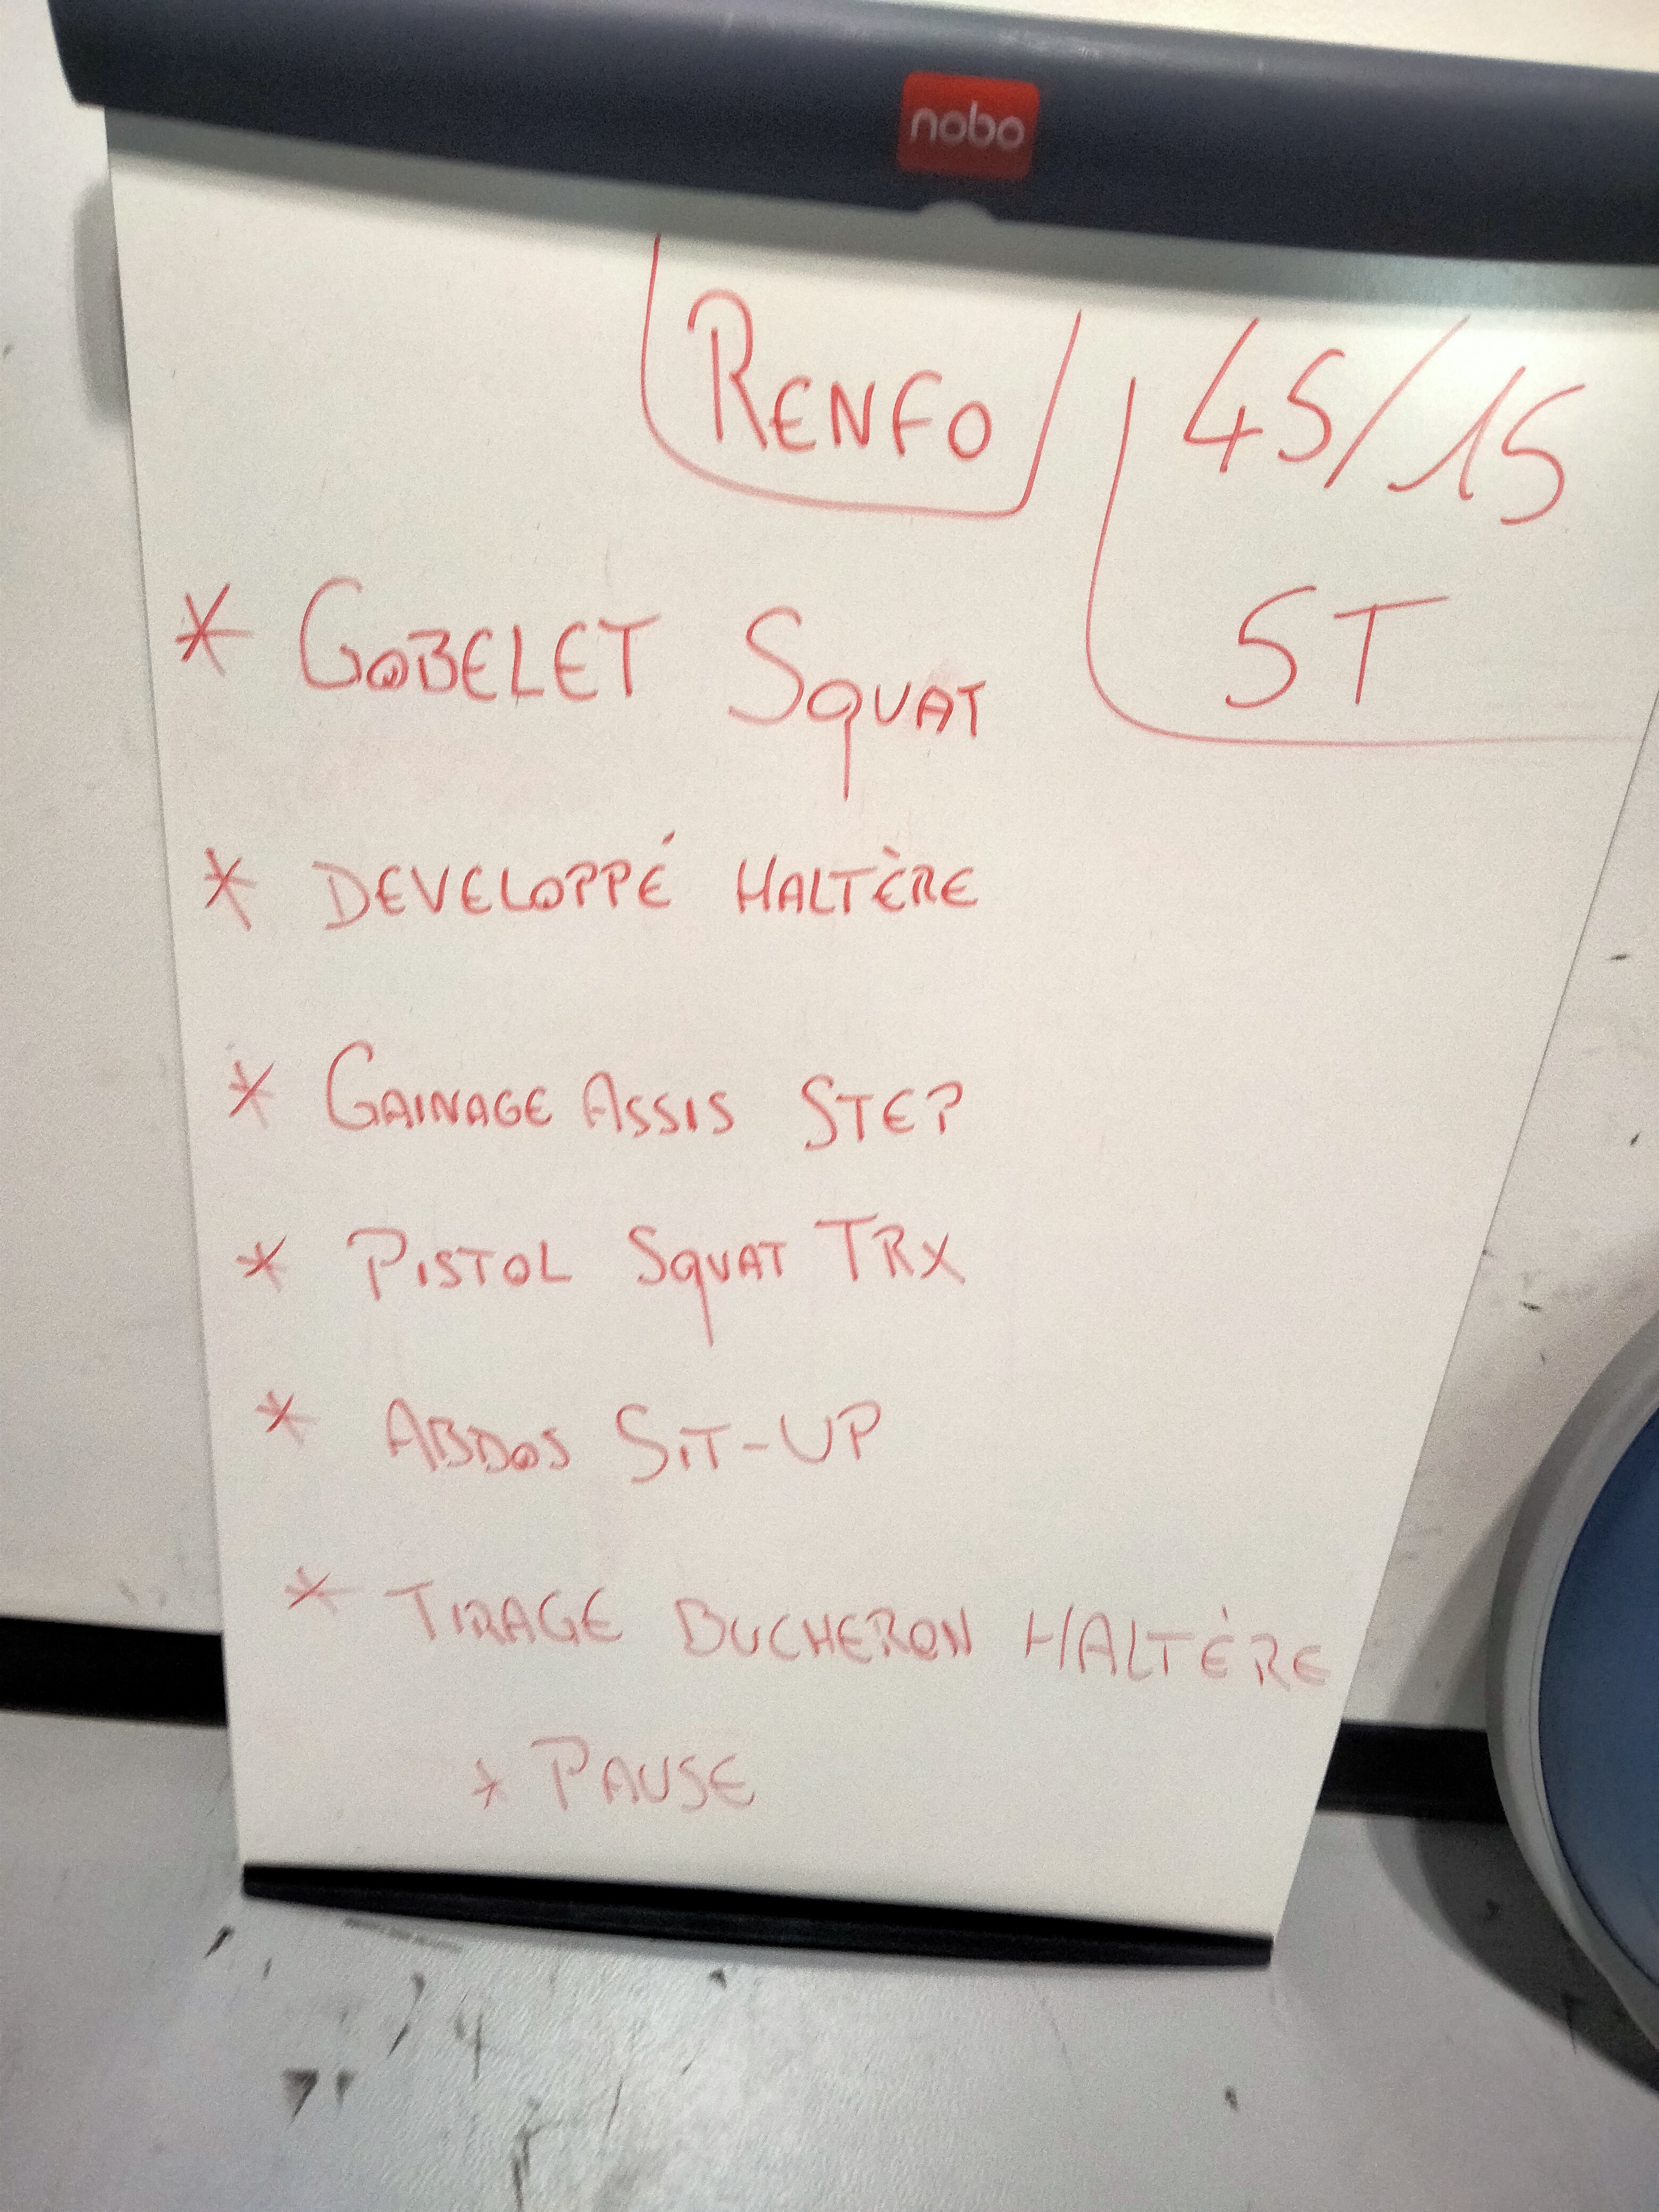 nobo
RENFO
45/15
5T
* GOBELET SQUAT
* DEVELOPPÉ HALTÈRE
* GAINAGE ASSIS STEP
* PISTOL SQUAT TRX
* ABDOS SIT-UP
* TIRAGE BUCHERON HALTÈRE
* PAUSE